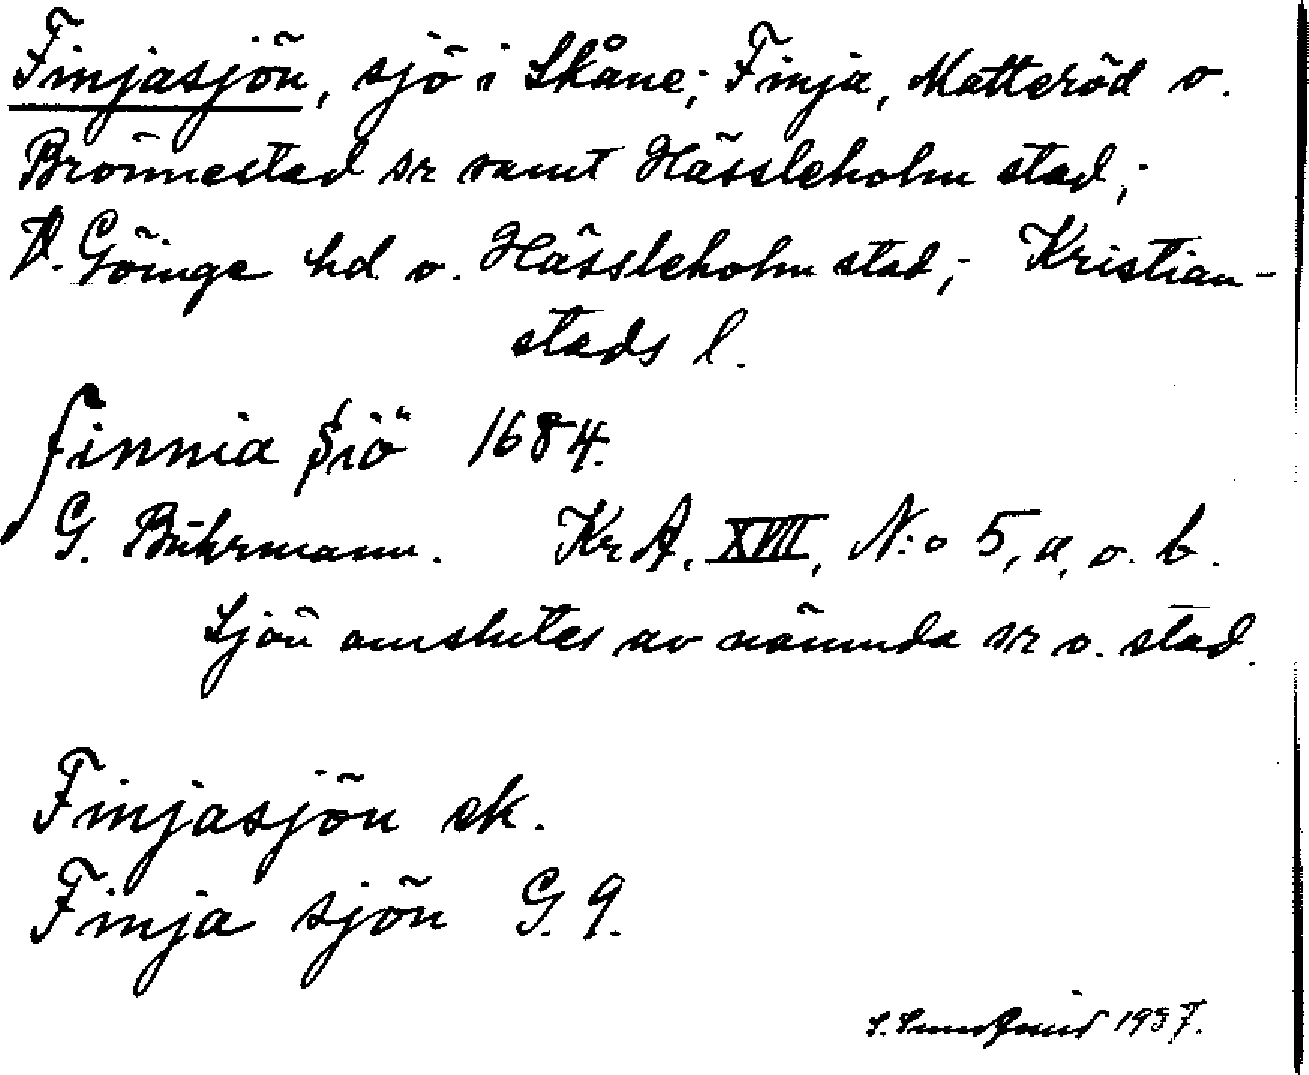 Finjasjön, sjö i Skåne; Finja, Matteröd o.
Brönnestad sr samt Hässleholm stad;
V. Göinge hd o. Hässleholm stad; Kristian-
stads l.
finnia siö 1684.
G. Buhrmann. KrA. XVII, N:o 5, a, o. b.
Sjön omslutes av nämnda sr o. stad.
Finjasjön ek.
Finja sjön G. 9.
1937.